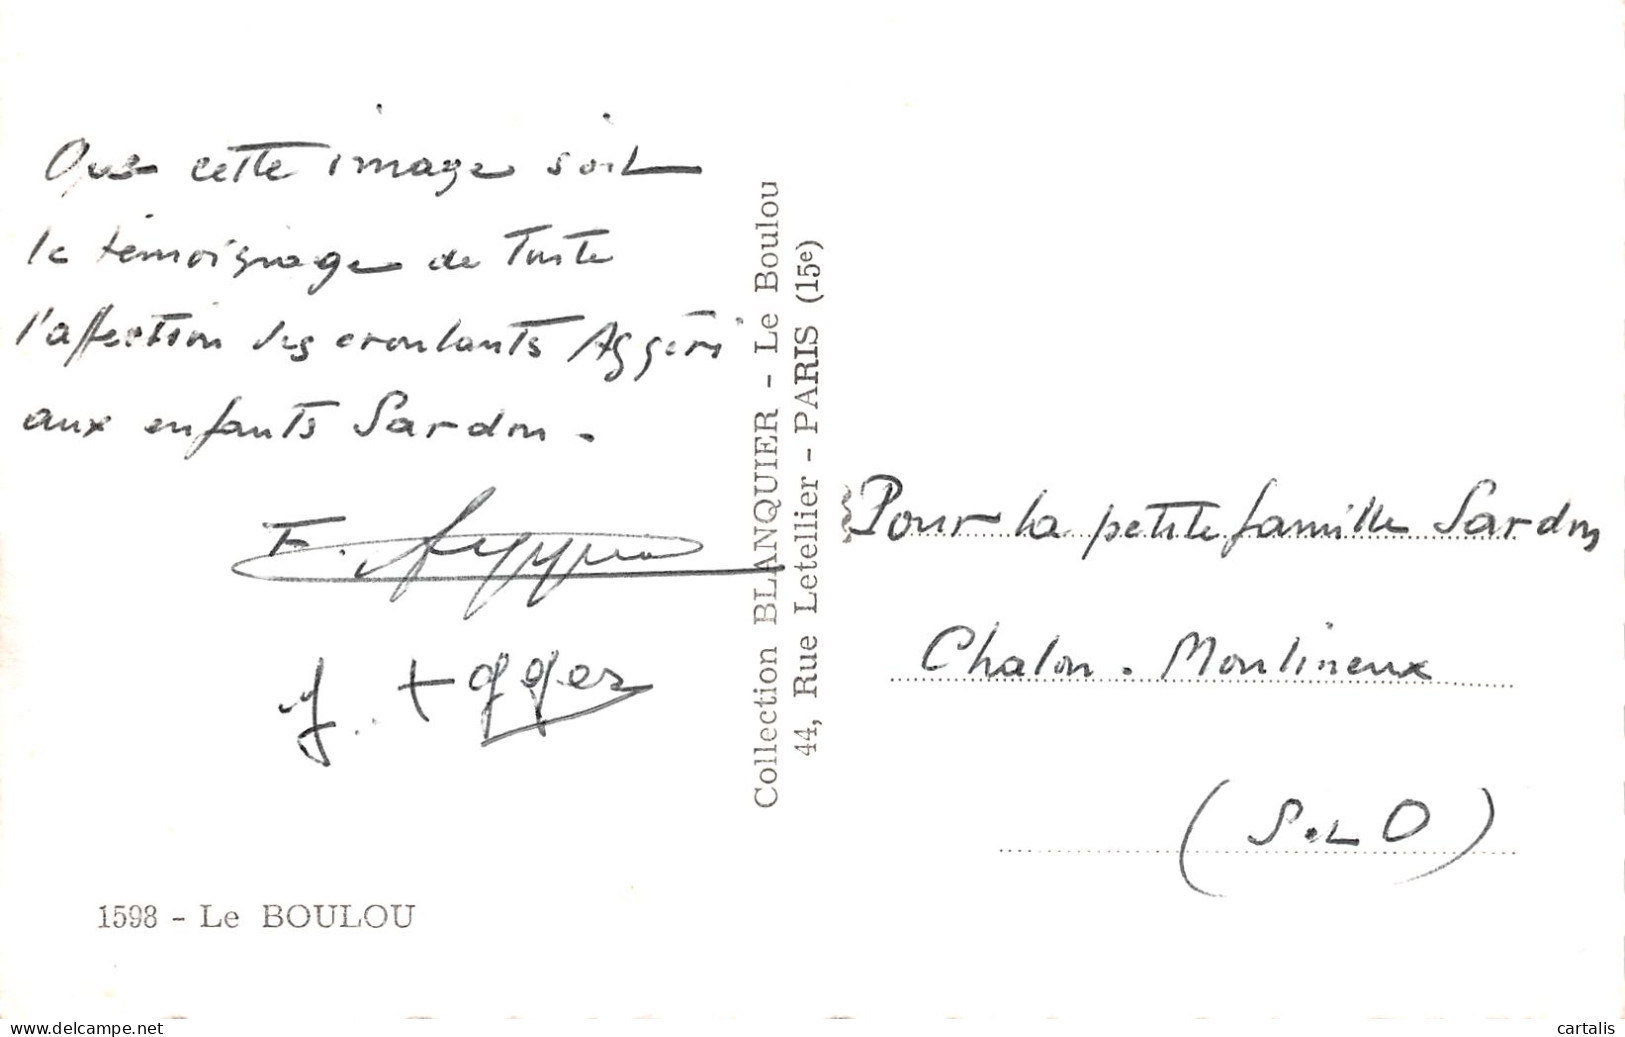 Que cette image soit
le témoignage de Toute
l'affection des croulants Aggéri
aux enfants Sardon.
F.
Collection BLANQUIER - Le Boulou
44, Rue Letellier - PARIS (15e)
Pour la petite famille Sardon
Chalon. Moulineux
(S.&O)
1598 - Le BOULOU
www.delcampe.net
cartalis